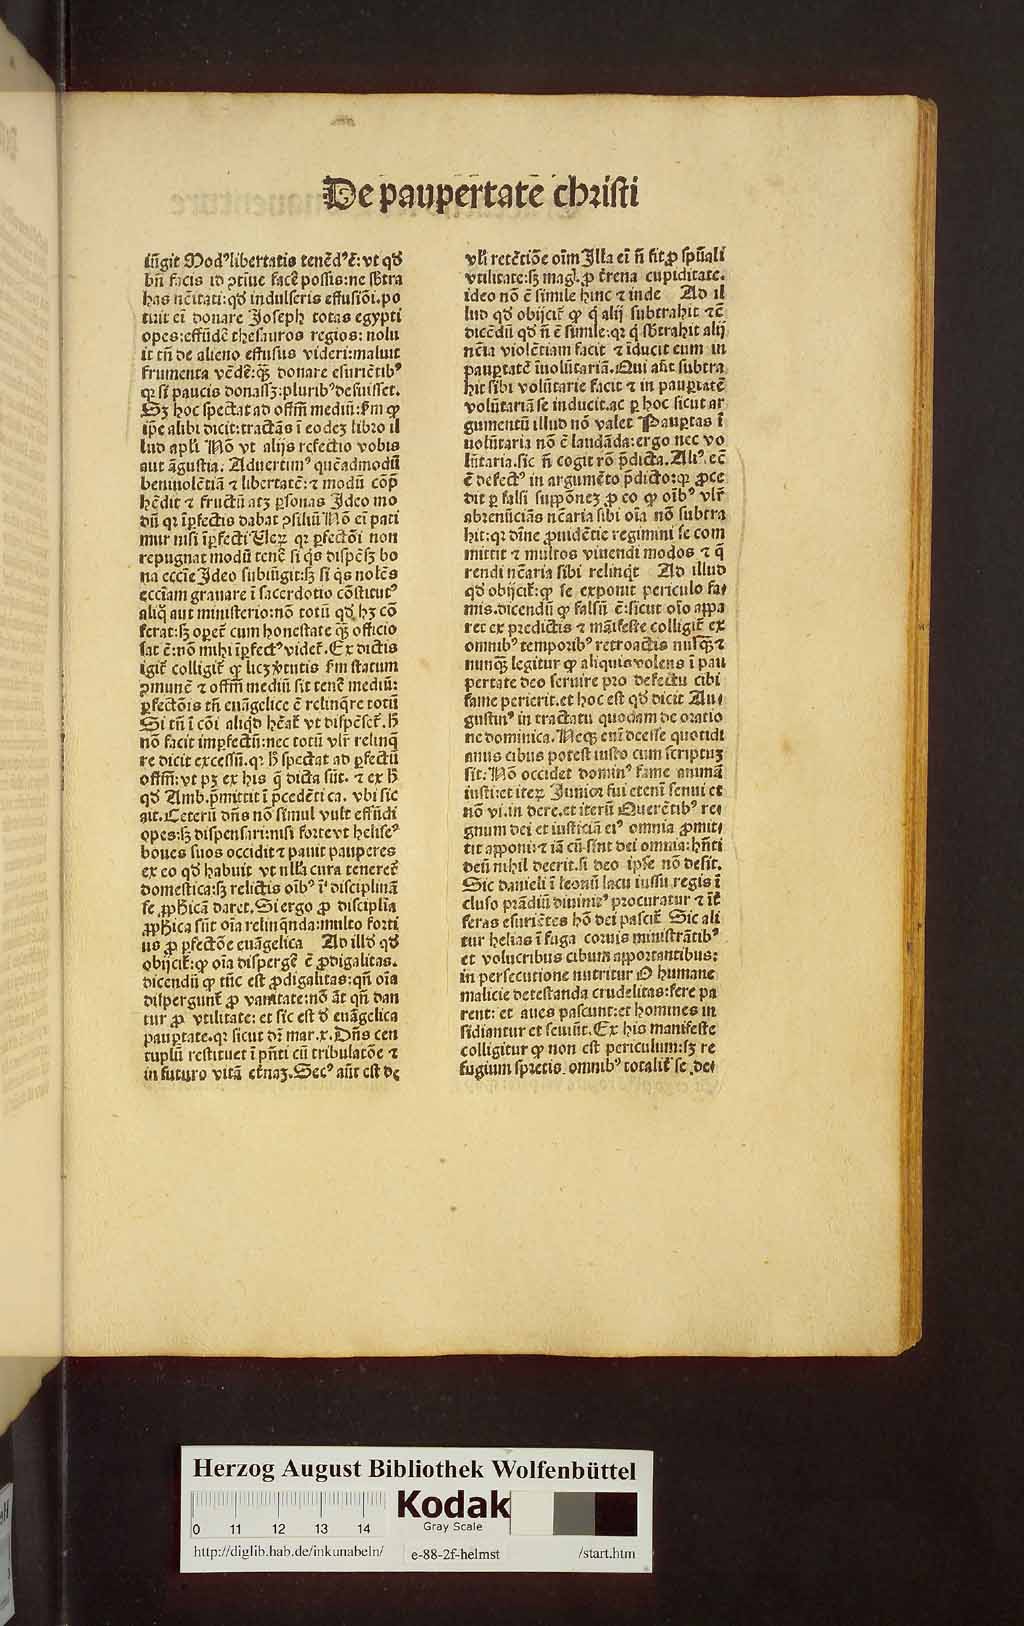 De paupertate christi
iũgit Modꝰ libertatis tenẽdꝰ ẽ: vt qđ
bñ facis id ꝯtiue facẽ possis: ne sb̃tra
has nẽitati: qđ indulseris effusiõi. po
tuit eĩ donare Joseph totas egypti
opes: effũdẽ thesauros regios: nolu
it tñ de alieno effusus videri: maluit
frumenta vẽdẽ: q̃ꝫ donare esuriẽtibꝰ
qꝛ si paucis donasꝫ: pluribꝰ defuisset.
Sꝫ hoc spectat ad offm̃ mediũ: s̃m ꝙ
ip̃e alibi dicit: tractãs ĩ eodeꝫ libro il
lud apl̃i Nõ vt alijs refectio vobis
aut ãgustia. Advertimꝰ quẽadmodũ
beniuolẽtiã ⁊ libertatẽ: ⁊ modũ cõp̃
hẽdit ⁊ fructũ atꝫ ꝑsonas Jdeo mo
dũ qꝛ ĩꝑfectis dabat ꝯsiliũ Nõ eĩ pati
mur nisi ĩꝑfecti Uerꝫ qꝛ ꝑfectõi non
repugnat modũ tenẽ si q̃s dispẽsꝫ bo
na eccĩe Jdeo subiũgit: sꝫ si q̃s nolẽs
eccĩam grauare ĩ sacerdotio cõstitutꝰ
aliq̃ aut ministerio: nõ totũ qđ hꝫ cõ
ferat: sꝫ operet̃ cum honestate q̃ꝫ officio
sat ẽ: nõ mihi ĩꝑfectꝰ videt̃. Ex dictis
igit̃ colligit̃ ꝙ licꝫ v̓tutis s̃m statum
ꝯmunẽ ⁊ offm̃ mediũ sit tenẽ mediũ:
ꝑfectõis tñ euãgelice ẽ relinq̃re totũ
Si tñ ĩ cõi aliqđ hẽat̃ vt dispẽset̃. h̃
nõ facit imꝑfectũ: nec totũ vlr̃ relinq̃
re dicit excessũ. qꝛ h̃ spectat ad ꝑfectũ
offm̃: vt pꝫ ex his q̃ dicta sũt. ⁊ ex h̃
qđ Amb. p̃mittit ĩ p̃cedẽti ca. vbi sic
ait. Ceterũ dñs nõ simul vult effũdi
opes: sꝫ dispensari: nisi forte vt heliseꝰ
boues suos occidit ⁊ pauit pauperes
ex eo qđ habuit vt nulla cura teneret̃
domestica: sꝫ relictis oĩbꝰ ĩ disciplinã
se ꝓph̃icã daret. Si ergo ꝓ disciplĩa
ꝓph̃ica sũt oĩa relinq̃nda: multo forti
us ꝓ ꝑfectõe euãgelica Ad illđ qđ
obijcit̃: ꝙ oĩa dispergẽ ẽ ꝓdigalitas.
dicendũ ꝙ tũc est ꝓdigalitas: qñ oĩa
dispergunt̃ ꝓ vanitate: nõ ãt qñ dan
tur ꝓ vtilitate: et sic est đ euãgelica
pauꝑtate. qꝛ sicut dr̃ mar. x. Dñs cen
tuplũ restituet ĩ pñti cũ tribulatõe ⁊
in futuro vitã et̃naꝫ. Secꝰ aũt est de
vl̃i retẽtiõe oĩm Jlla eĩ ñ fit ꝓ sp̃uali
vtilitate: sꝫ magꝭ ꝓ t̃rena cupiditate.
ideo nõ ẽ simile hinc ⁊ inde Ad il
lud qđ obijcit̃ ꝙ q̃ alij subtrahit ⁊c̃
dicẽdũ qđ ñ ẽ simile: qꝛ q̃ sb̃trahit alij
nc̃ia violẽtiam facit ⁊ ĩducit eum in
pauꝑtatẽ ĩuolũtariã. Qui aũt subtra
hit sibi volũtarie facit ⁊ in pauꝑtatẽ
volũtariã se inducit. ac ꝑ hoc sicut ar
gumentũ illud nõ valet Pauꝑtas ĩ
uolũtaria nõ ẽ laudãda: ergo nec vo
lũtaria. sic ñ cogit rõ p̃dicta. Aliꝰ eĩ
ẽ defectꝰ in argumẽto p̃dicto: qꝛ ꝓce
dit ꝑ falsi suppõneꝫ ꝓ eo ꝙ oĩbꝰ vlr̃
abrenũciãs nc̃aria sibi oĩa nõ subtra
hit: qꝛ diñe ꝓuidẽtie regimini se com
mittit ⁊ multos viuendi modos ⁊ q̃
rendi nc̃aria sibi relinq̃t Ad illud
qđ obijcit̃: ꝙ se exponit periculo fa⸗
mis. dicendũ ꝙ falsũ ẽ: sicut oĩo appa
ret ex predictis ⁊ mãifeste colligit̃ ex
omnibꝰ temporibꝰ retroactis nusq̃ꝫ ⁊
nunq̃ꝫ legitur ꝙ aliquis volens ĩ pau
pertate deo seruire pro defectu cibi
fame perierit. et hoc est qđ dicit Au⸗
gustinꝰ in tractatu quodam de oratio
ne dominica. Neqꝫ enĩ deesse quotidi
anus cibus potest iusto cum scriptuꝫ
sit: Nõ occidet dominꝰ fame animã
iusti: et iteꝝ Junior fui etenĩ senui et
nõ vi. in dere. et iterũ Querẽtibꝰ re⸗
gnum dei et iusticiã eiꝰ omnia ꝓmit⸗
tit apponi: ⁊ iã cũ sint dei omnia: hñti
deũ nihil deerit. si deo ipse nõ desit.
Sic danieli ĩ leonũ lacu iussu regis ĩ
cluso prãdiũ diuinitꝰ procuratur ⁊ ĩt̃
feras esuriẽtes hõ dei pascit̃. Sic ali
tur helias ĩ fuga coruis ministrãtibꝰ
et volucribus cibum apportantibus:
in persecutione nutritur O humane
malicie detestanda crudelitas: fere pa
rent: et aues pascunt: et homines in
sidiantur et seuiũt. Ex his manifeste
colligitur ꝙ non est periculum: sꝫ re
fugium spretis omnibꝰ totalit̃ se dei
Herzog August Bibliothek Wolfenbüttel
0 11 12 13 14
Kodak
Gray Scale
http://diglib.hab.de/inkunabeln/ e-88-2f-helmst /start.htm